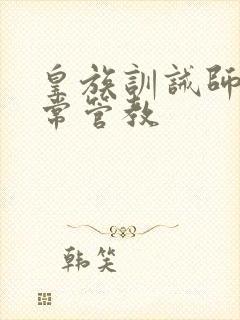 皇族訓誡師
常管教
韩笑